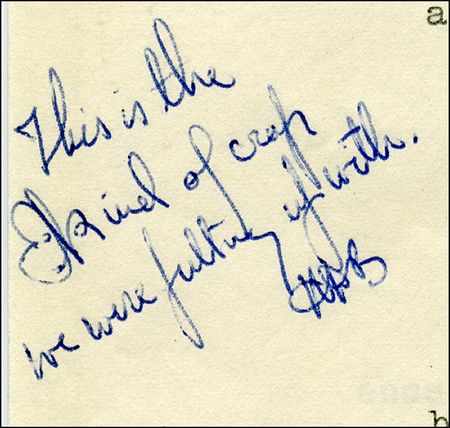 a
This is the
kind of crap
we were putting up with.
b